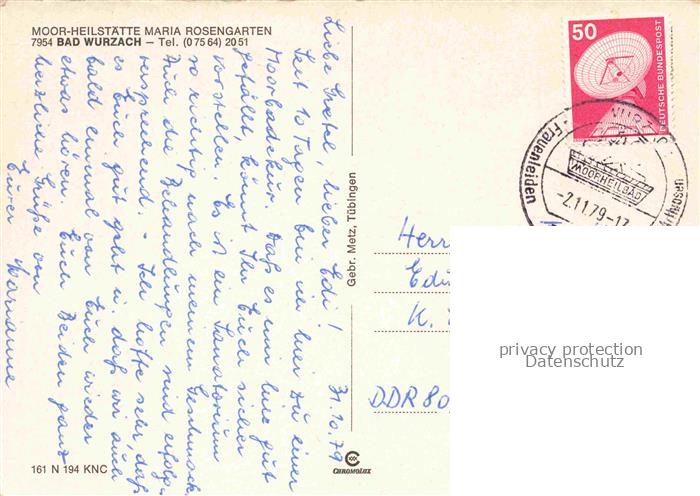 MOOR-HEILSTÄTTE MARIA ROSENGARTEN
7954 BAD WURZACH – Tel. (0 75 64) 20 51
31.10.79
Liebe Gretel, lieber Edi!
Seit 10 Tagen bin ich hier zu einer
Moorbadekur. Daß es mir hier gut
gefällt, könnt Ihr Euch sicher
vorstellen. Es ist ein Sanatorium
so richtig nach meinem Geschmack.
Auch die Behandlungen sind erfolg-
versprechend. - Ich hoffe sehr, daß
es Euch gut geht u. daß wir auch
bald einmal von Euch wieder
etwas hören. Euch Beiden ganz
herzliche Grüße von
Eurer Marianne
161 N 194 KNC
Gebr. Metz, Tübingen
CHROMOLUX
50
DEUTSCHE BUNDESPOST
WURZACH
Frauenleiden
MOORHEILBAD
-2.11.79-17
Herr
Edu
K.
DDR 80
privacy protection
Datenschutz